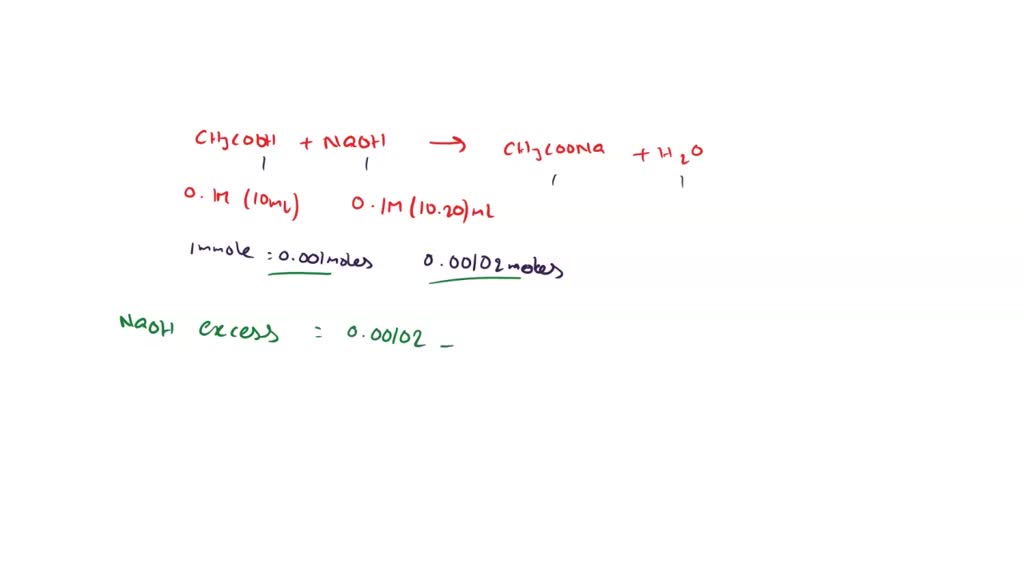 CH3COOH + NaOH → CH3COONa + H2O
0.1M (10mL) 0.1M (10.20) mL
1mmole = 0.001moles 0.00102 moles
NaOH excess = 0.00102 –